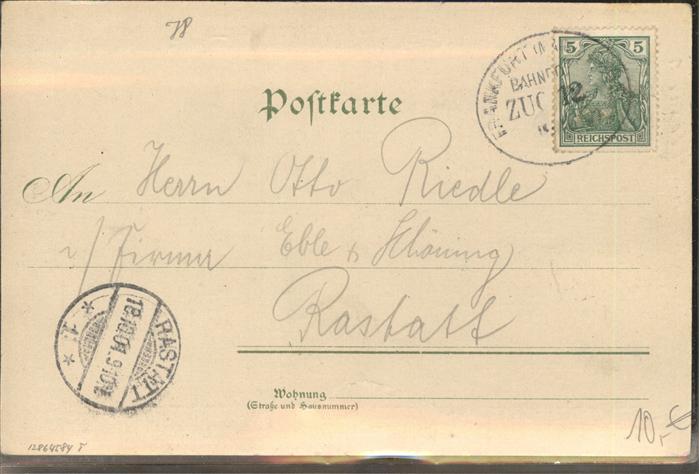 78
5 5
FRANKFURT
BAHNPO
ZUG 12
REICHSPOST
Postkarte
An Herrn Otto Riedle
i/Firma Eble & Schöning
Rastatt
RASTATT
18.10.01.9-10V.
* 1f *
Wohnung
(Straße und Hausnummer)
12864584 T
10,-€